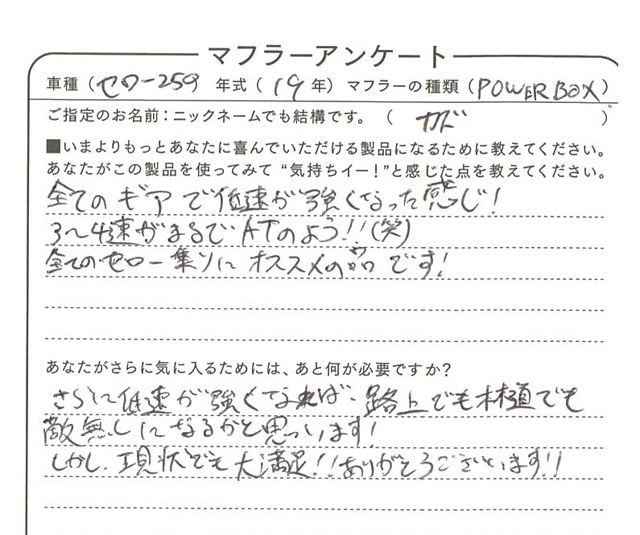 マフラーアンケート
車種（セロー250 年式（19年）マフラーの種類（POWER BOX）
ご指定のお名前：ニックネームでも結構です。（ カド ）
■いまよりもっとあなたに喜んでいただける製品になるために教えてください。
あなたがこの製品を使ってみて“気持ちイー！”と感じた点を教えてください。
全てのギアで低速が強くなった感じ！
3〜4速がまるでATのよう！！（笑）
全てのセロー乗りにオススメの品です！
あなたがさらに気に入るためには、あと何が必要ですか？
さらに低速が強くなれば、路上でも林道でも
敵無しになるかと思っています！
しかし、現状でも大満足！！ありがとうございます！！